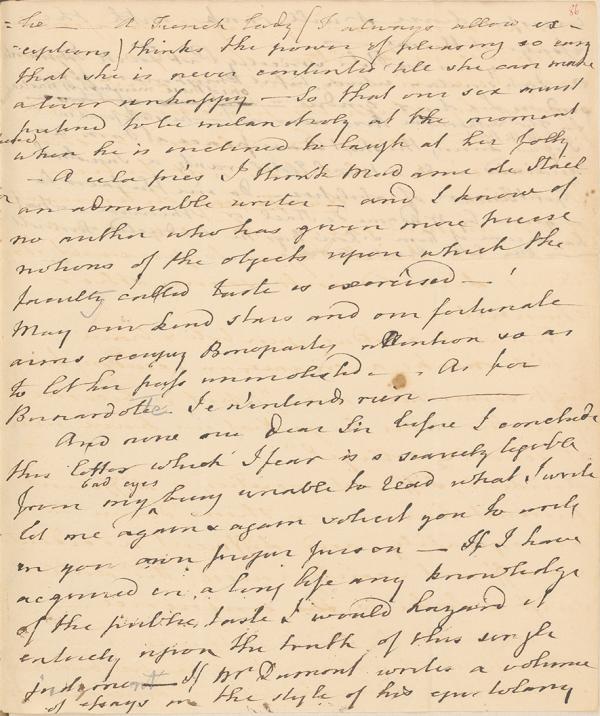 86
he — A French Lady (I always allow ex-
ceptions) thinks the power of pleasing so easy
that she is never contented till she can make
a lover unhappy — So that our sex must
pretend to be melancholy at the moment
when he is inclined to laugh at her folly
— A cela près I think Madame de Stael
an admirable writer — and I know of
no author who has given more precise
notions of the objects upon which the
faculty called taste is exercised — !
May our kind stars and our fortunate
arms occupy Bonoparty attention so as
to let her pass unmolested — . As for
Bernardotte Je n'entends rien —
And now one Dear Sir before I conclude
this letter which I fear is a scarcely legible
bad eyes
from my being unable to read what I write
let me again & again solicit you to write
in your own proper person — If I have
acquired in a long life any knowledge
of the public taste I would hazard it
entirely upon the truth of this single
judgment — If Mr Dumont writes a volume
of essays in the style of his epistolary